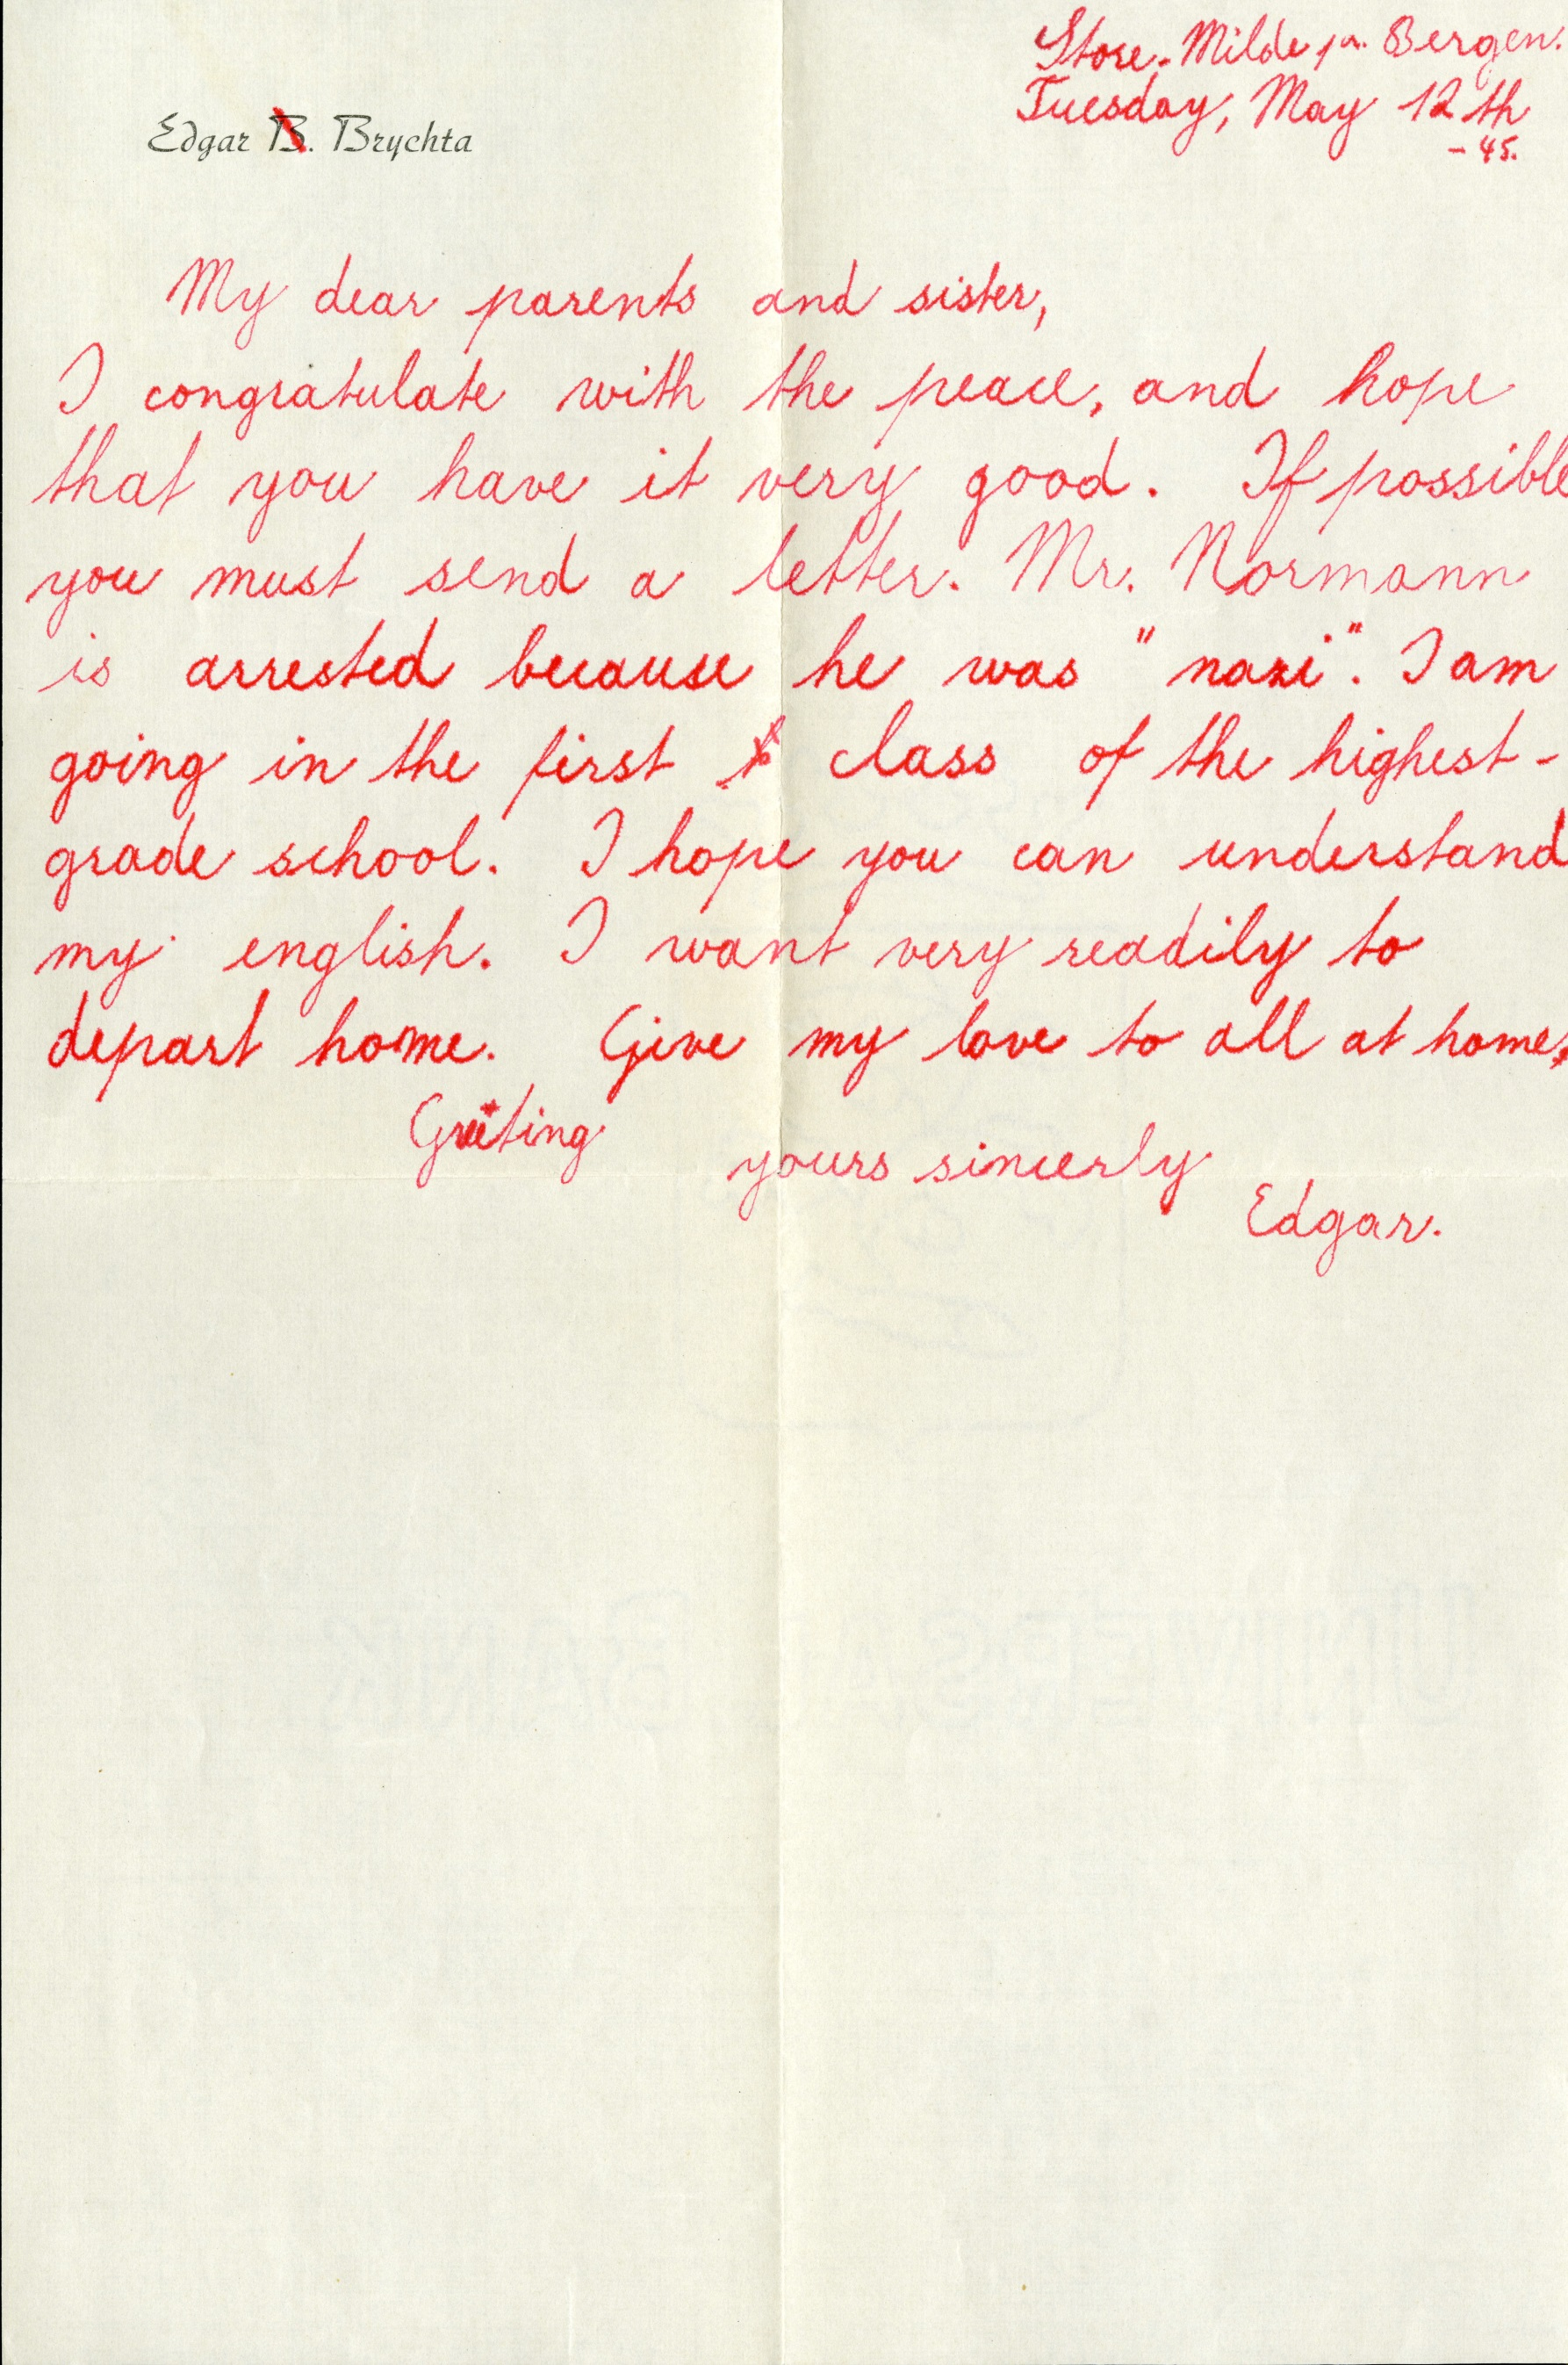 Store-Milde pr. Bergen.
Tuesday, May 12th
-45.
Edgar B. Brychta
My dear parents and sister,
I congratulate with the peace, and hope
that you have it very good. If possible
you must send a letter. Mr. Normann
is arrested because he was "nazi". I am
going in the first class of the highest-
grade school. I hope you can understand
my english. I want very readily to
depart home. Give my love to all at home.
Greeting
yours sincerly
Edgar.